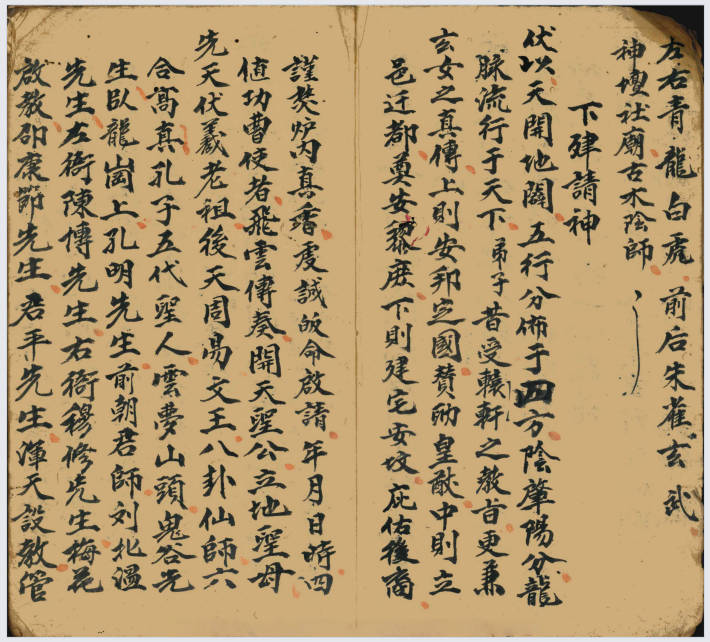 左右青龍白虎前后朱雀玄武
神壇社廟古木陰師
下肂請神
伏以天開地闢五行分佈于四方陰肇陽分龍
脉流行于天下弟子昔受轅軒之教旨更兼
玄女之真傳上則安邦定國賛助皇猷中則立
邑迁都奠安黎庶下則建宅安坟庇佑後裔
謹焚炉内真香虔誠皈命啟請年月日時四
值功曹使者飛雲傳奏開天聖公立地聖母
先天伏羲老祖後天周易文王八卦仙師六
合高真孔子五代聖人雲夢山頭鬼谷先
生臥龍崗上孔明先生前朝君師刘札温
先生左衙陳愽先生右衙穆修先生梅花
啟教邵康節先生君平先生渾天設教管